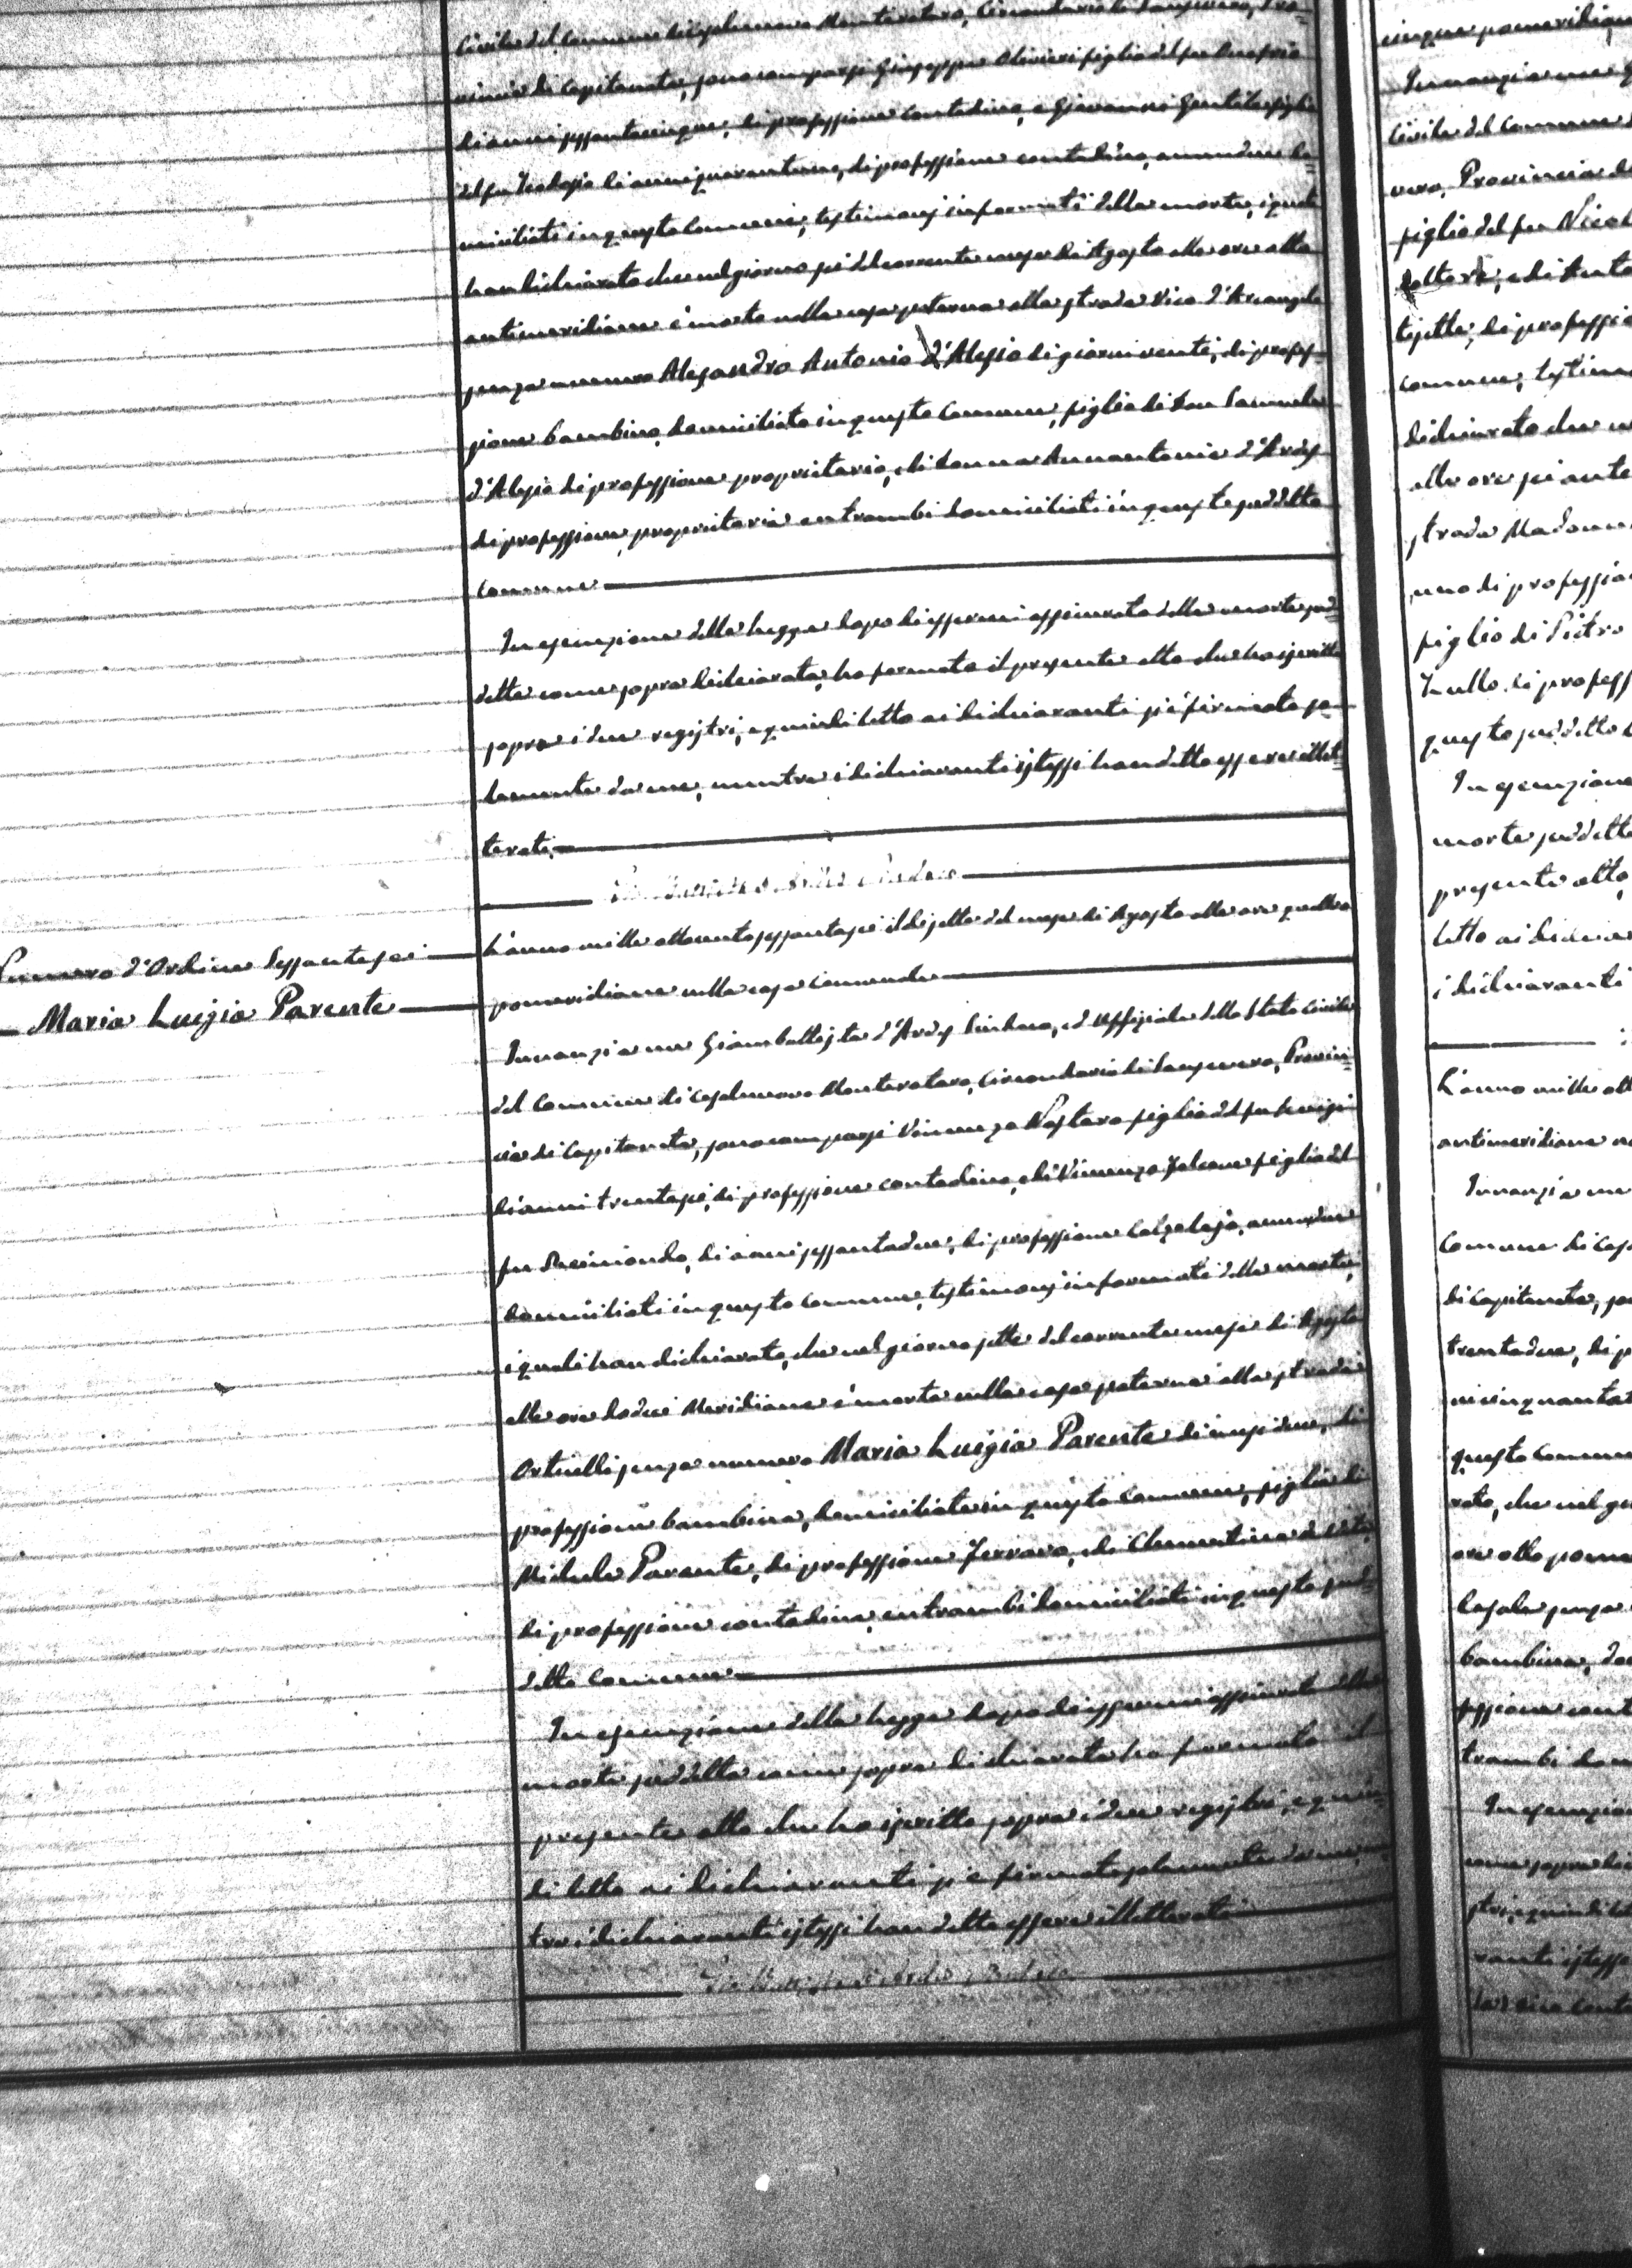 Civile del Comune di Casalnuovo Monterotaro, Circondario di Sansevero, Pro=
vincia di Capitanata, sono comparsi Giuseppe Olivieri figlio del fu
di anni sessantacinque, di professione contadino, e Giovanni Gentile figlio
del fu Teodosio di anni quarantuno, di professione contadino, amendue do=
miciliati in questo Comune, testimonj informati della morte, i quali
han dichiarato che nel giorno sei del corrente mese di Agosto alle ore otto
antimeridiane è morto nella casa paterna alla strada Vico d'Arcangelo
senza numero Alesandro Antonio d'Alesio di giorni venti, di profes=
sione bambino, domiciliato in questo Comune, figlio di Don Samuele
d'Alesio di professione proprietario, e di Donna Annantonia d'Ardes
di professione proprietaria entrambi domiciliati in questo suddetto
Comune
In esecuzione della legge dopo di essermi assicurato della morte sud=
detta come sopra dichiarata, ho formato il presente atto che ho iscritto
sopra i due registri, e quindi letto ai dichiaranti si è firmato so=
lamente da me, mentre i dichiaranti istessi han detto essere illet=
terati
Numero d'Ordine Sessantasei
Maria Luigia Parente
L'anno mille ottocento sessantasei il dì sette del mese di Agosto alle ore quattro
pomeridiane nella casa Comunale
Innanzi a me Giambattista d'Ardes Sindaco, ed Uffiziale dello Stato Civile
del Comune di Casalnuovo Monterotaro, Circondario di Sansevero, Provin=
cia di Capitanata, sono comparsi Vincenzo Nostaro figlio del fu Luigi
di anni trentasei, di professione contadino, e di Vincenzo Falcone figlio del
fu Raimondo, di anni sessantadue, di professione Calzolajo, amendue
domiciliati in questo Comune, testimonj informati della morte,
i quali han dichiarato, che nel giorno sette del corrente mese di Agosto
alle ore dodici Meridiane è morta nella casa paterna alla strada
Orticelli senza numero Maria Luigia Parente di mesi due, di
professione bambina, domiciliata in questo Comune, figlia di
Michele Parente, di professione Ferraro, e di Clementina
di professione contadina, entrambi domiciliati in questo sud=
detto Comune
In esecuzione della legge dopo di essermi assicurato della
morte suddetta come sopra dichiarata ho formato il
presente atto che ho iscritto sopra i due registri, e quin=
di letto ai dichiaranti si è firmato solamente da me, men
tre i dichiaranti istessi han detto essere illetterati
cinque pomeridiane
Innanzi a me
Civile del Comune
vero, Provincia di
figlio del fu Nicol
e di Anto
di professio
comune, testimo
dichiarato che
alle ore sei ante
strada Madonn
figlio di Pietro
di profess
questo suddetto
In esecuzione
morte suddetta
presente atto,
letto ai dichia
i dichiaranti
L'anno mille ott
antimeridiane
Innanzi a me
Comune di Cas
di Capitanata, so
trentadue, di p
ni cinquanta
questo Comune
rato, che nel gio
ore otto pome
senza
bambina, do
fessione cont
trambi dom
In esecuzion
come sopra di
stri, e quindi let
ranti istessi